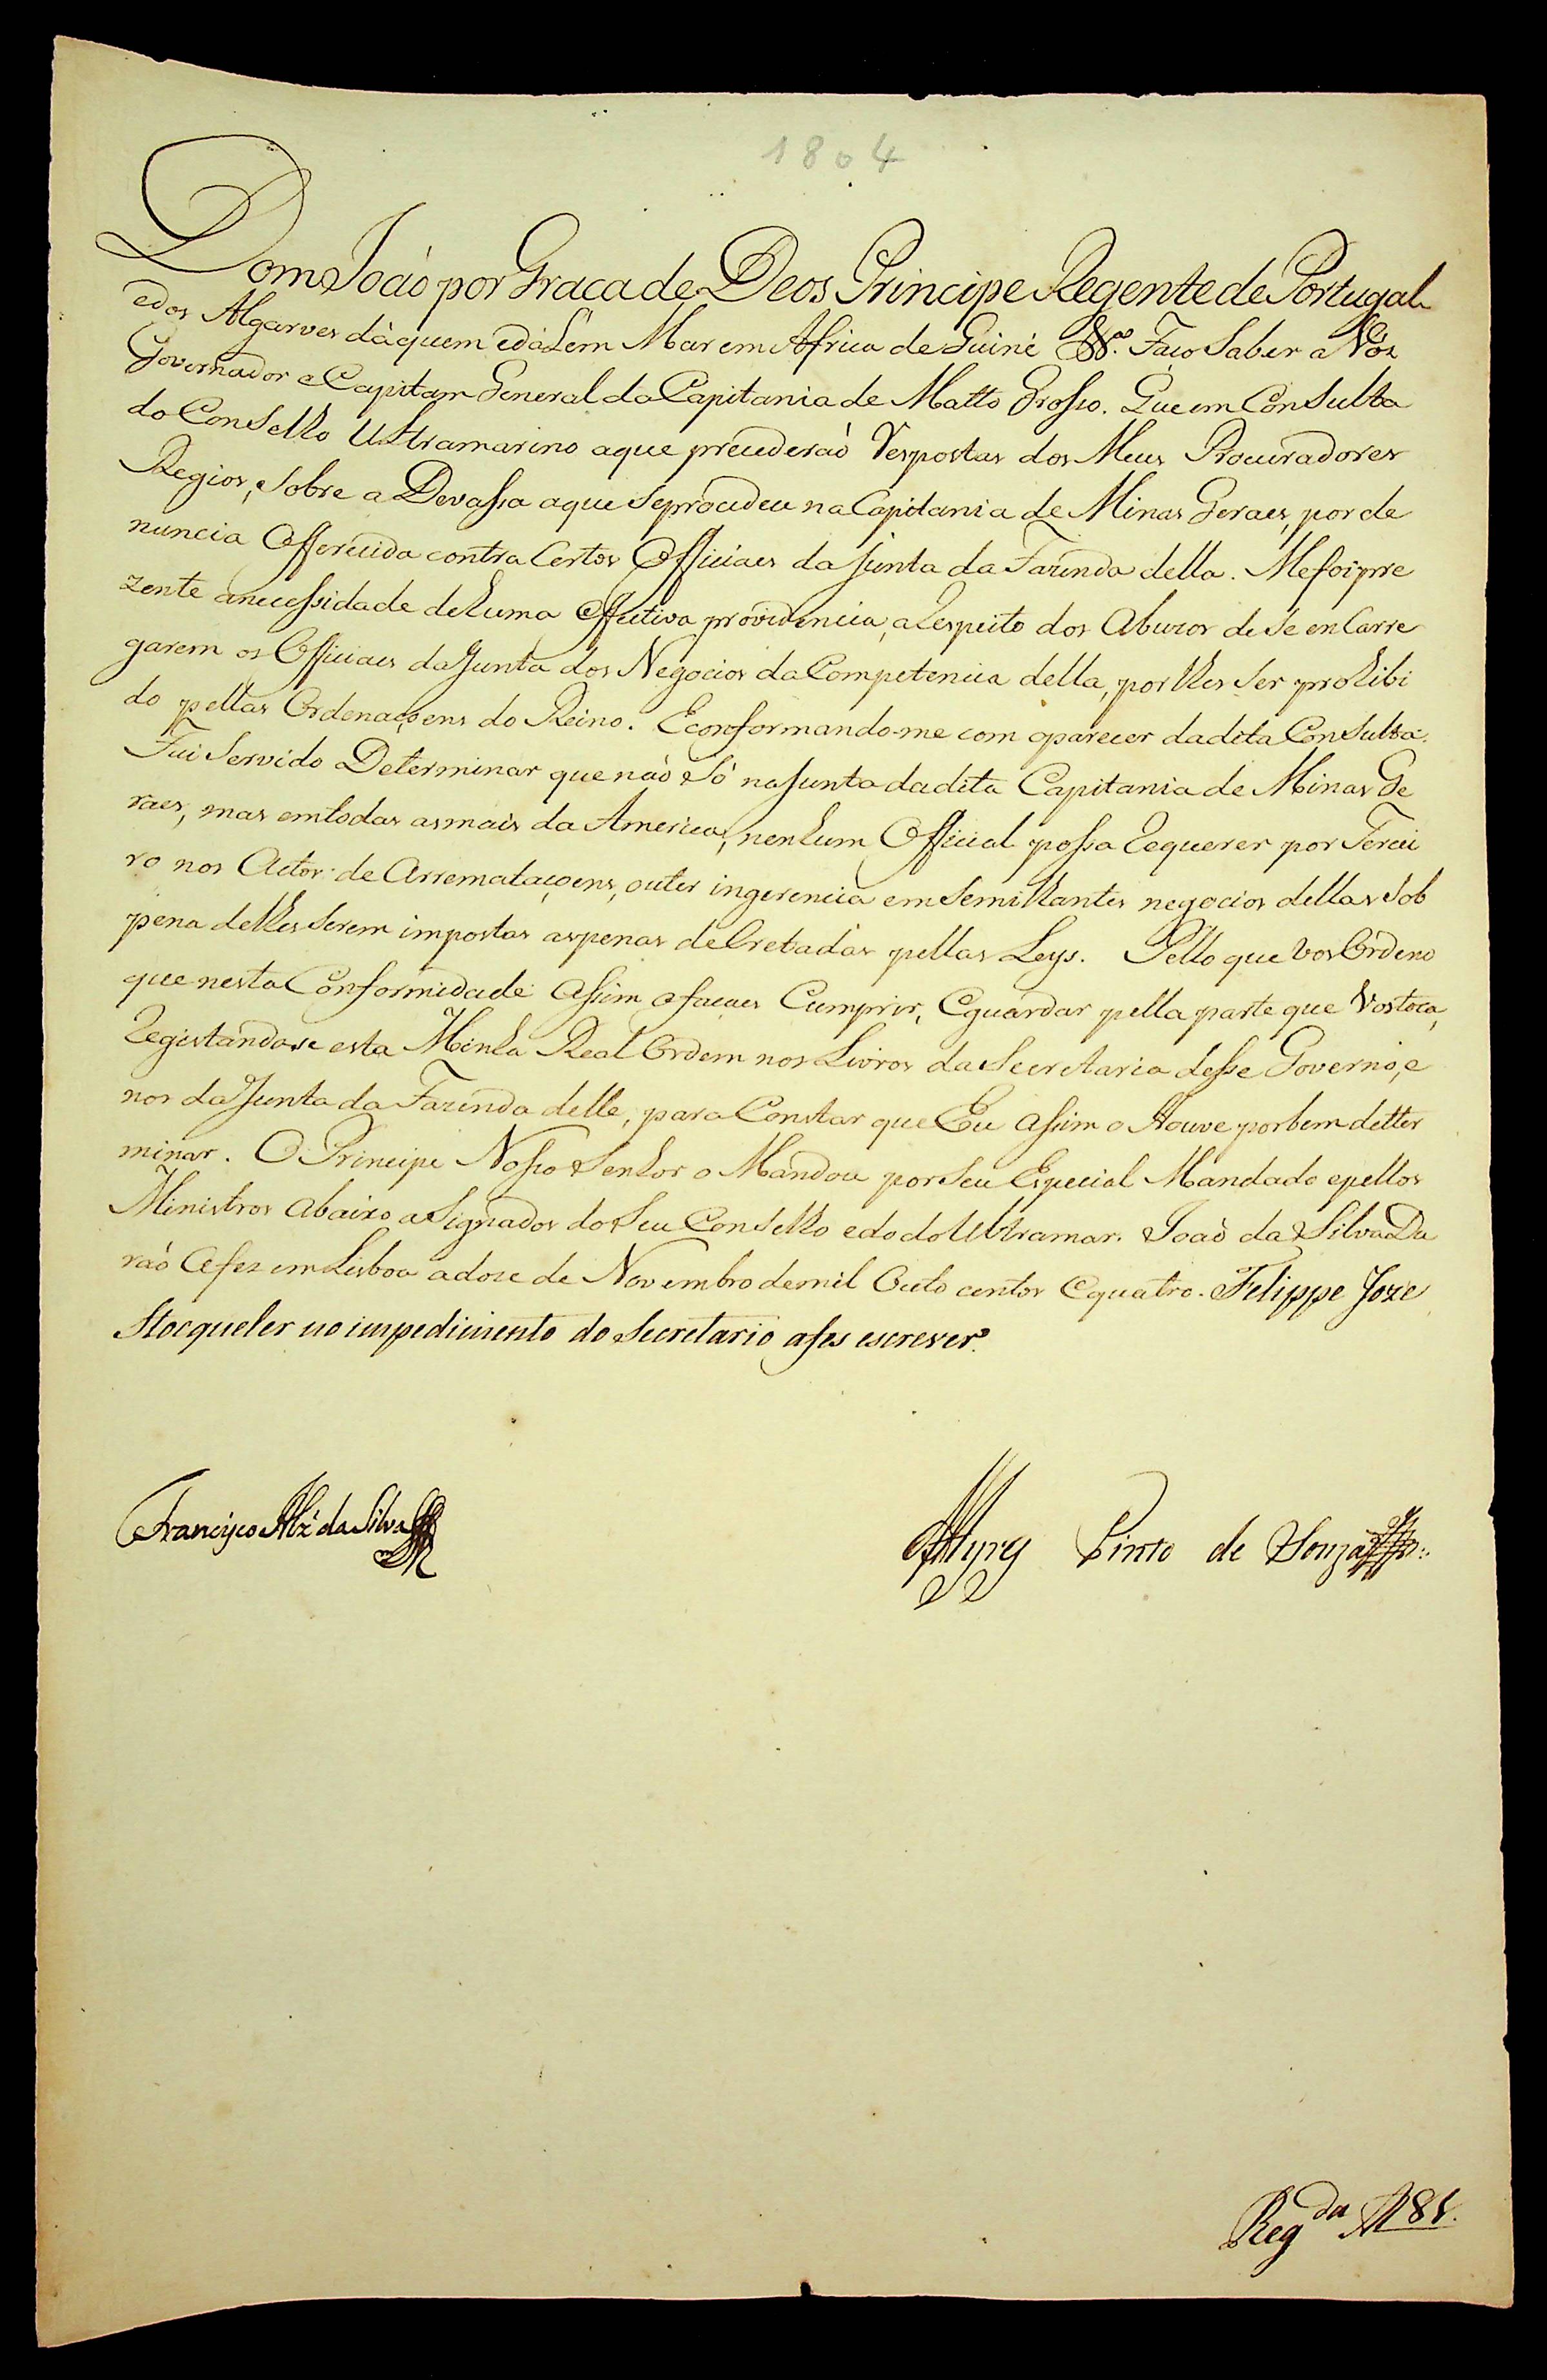 1804
Dom João por Graca de Deos Principe Regente de Portugal
edos Algarves dàquem edàLem Mar em Africa de Guiné &c.ª Faco Saber a Vós
Governador e Capitam General da Capitania de Matto Grosso. Que em ConSulta
do ConSelho Ultramarino aque precederaò Respostas dos Meus Procuradores
Regios, Sobre a Devassa aque Seprocedeu na Capitania de Minas Geraes, por de
nuncia Offerecida contra Certos Officiaes da Junta da Fazenda della. Mefoi pre
zente anecessidade dehuma effectiva providencia, aRespeito dos Abuzos de Se enCarre
garem os Officiaes da Junta dos Negocios da Competencia della, por lhes Ser prohibi
do pellas Ordenaçoens do Reino. Econformando-me com oparecer dadita ConSulta.
Fui Servido Determinar que não Só na Junta dadita Capitania de Minas Ge
raes, mas emtodas asmais da America, nenhum Official possa Requerer por Tercei
ro nos Actos de Arremataçoens, outer ingerencia em Semilhantes negocios dellas Sob
pena delhes Serem impostas aspenas deCretadas pellas Leys. Pello que Vos Ordeno
que nesta Conformidade assim ofacaes Cumprir, Eguardar pella parte que Vostoca,
Registandose esta Minha Real Ordem nos Livros da Secretaria desse Governo, e
nos da Junta da Fazenda delle, para Constar que Eu assim o Houve porbem detter
minar. O Principe Nosso Senhor o Mandou por Seu Especial Mandado epellos
Ministros abaixo aSignados do Seu ConSelho edo do Ultramar. Joaò da Silva Du
raò afes em Lisboa adoze de Novembro demil Outo centos Equatro. Felippe Joze
Stocqueler no impedimento do Secretario afes escrever.
Francisco Alz' da Silva
Ayres Pinto de Souza
Reg.da A 81.